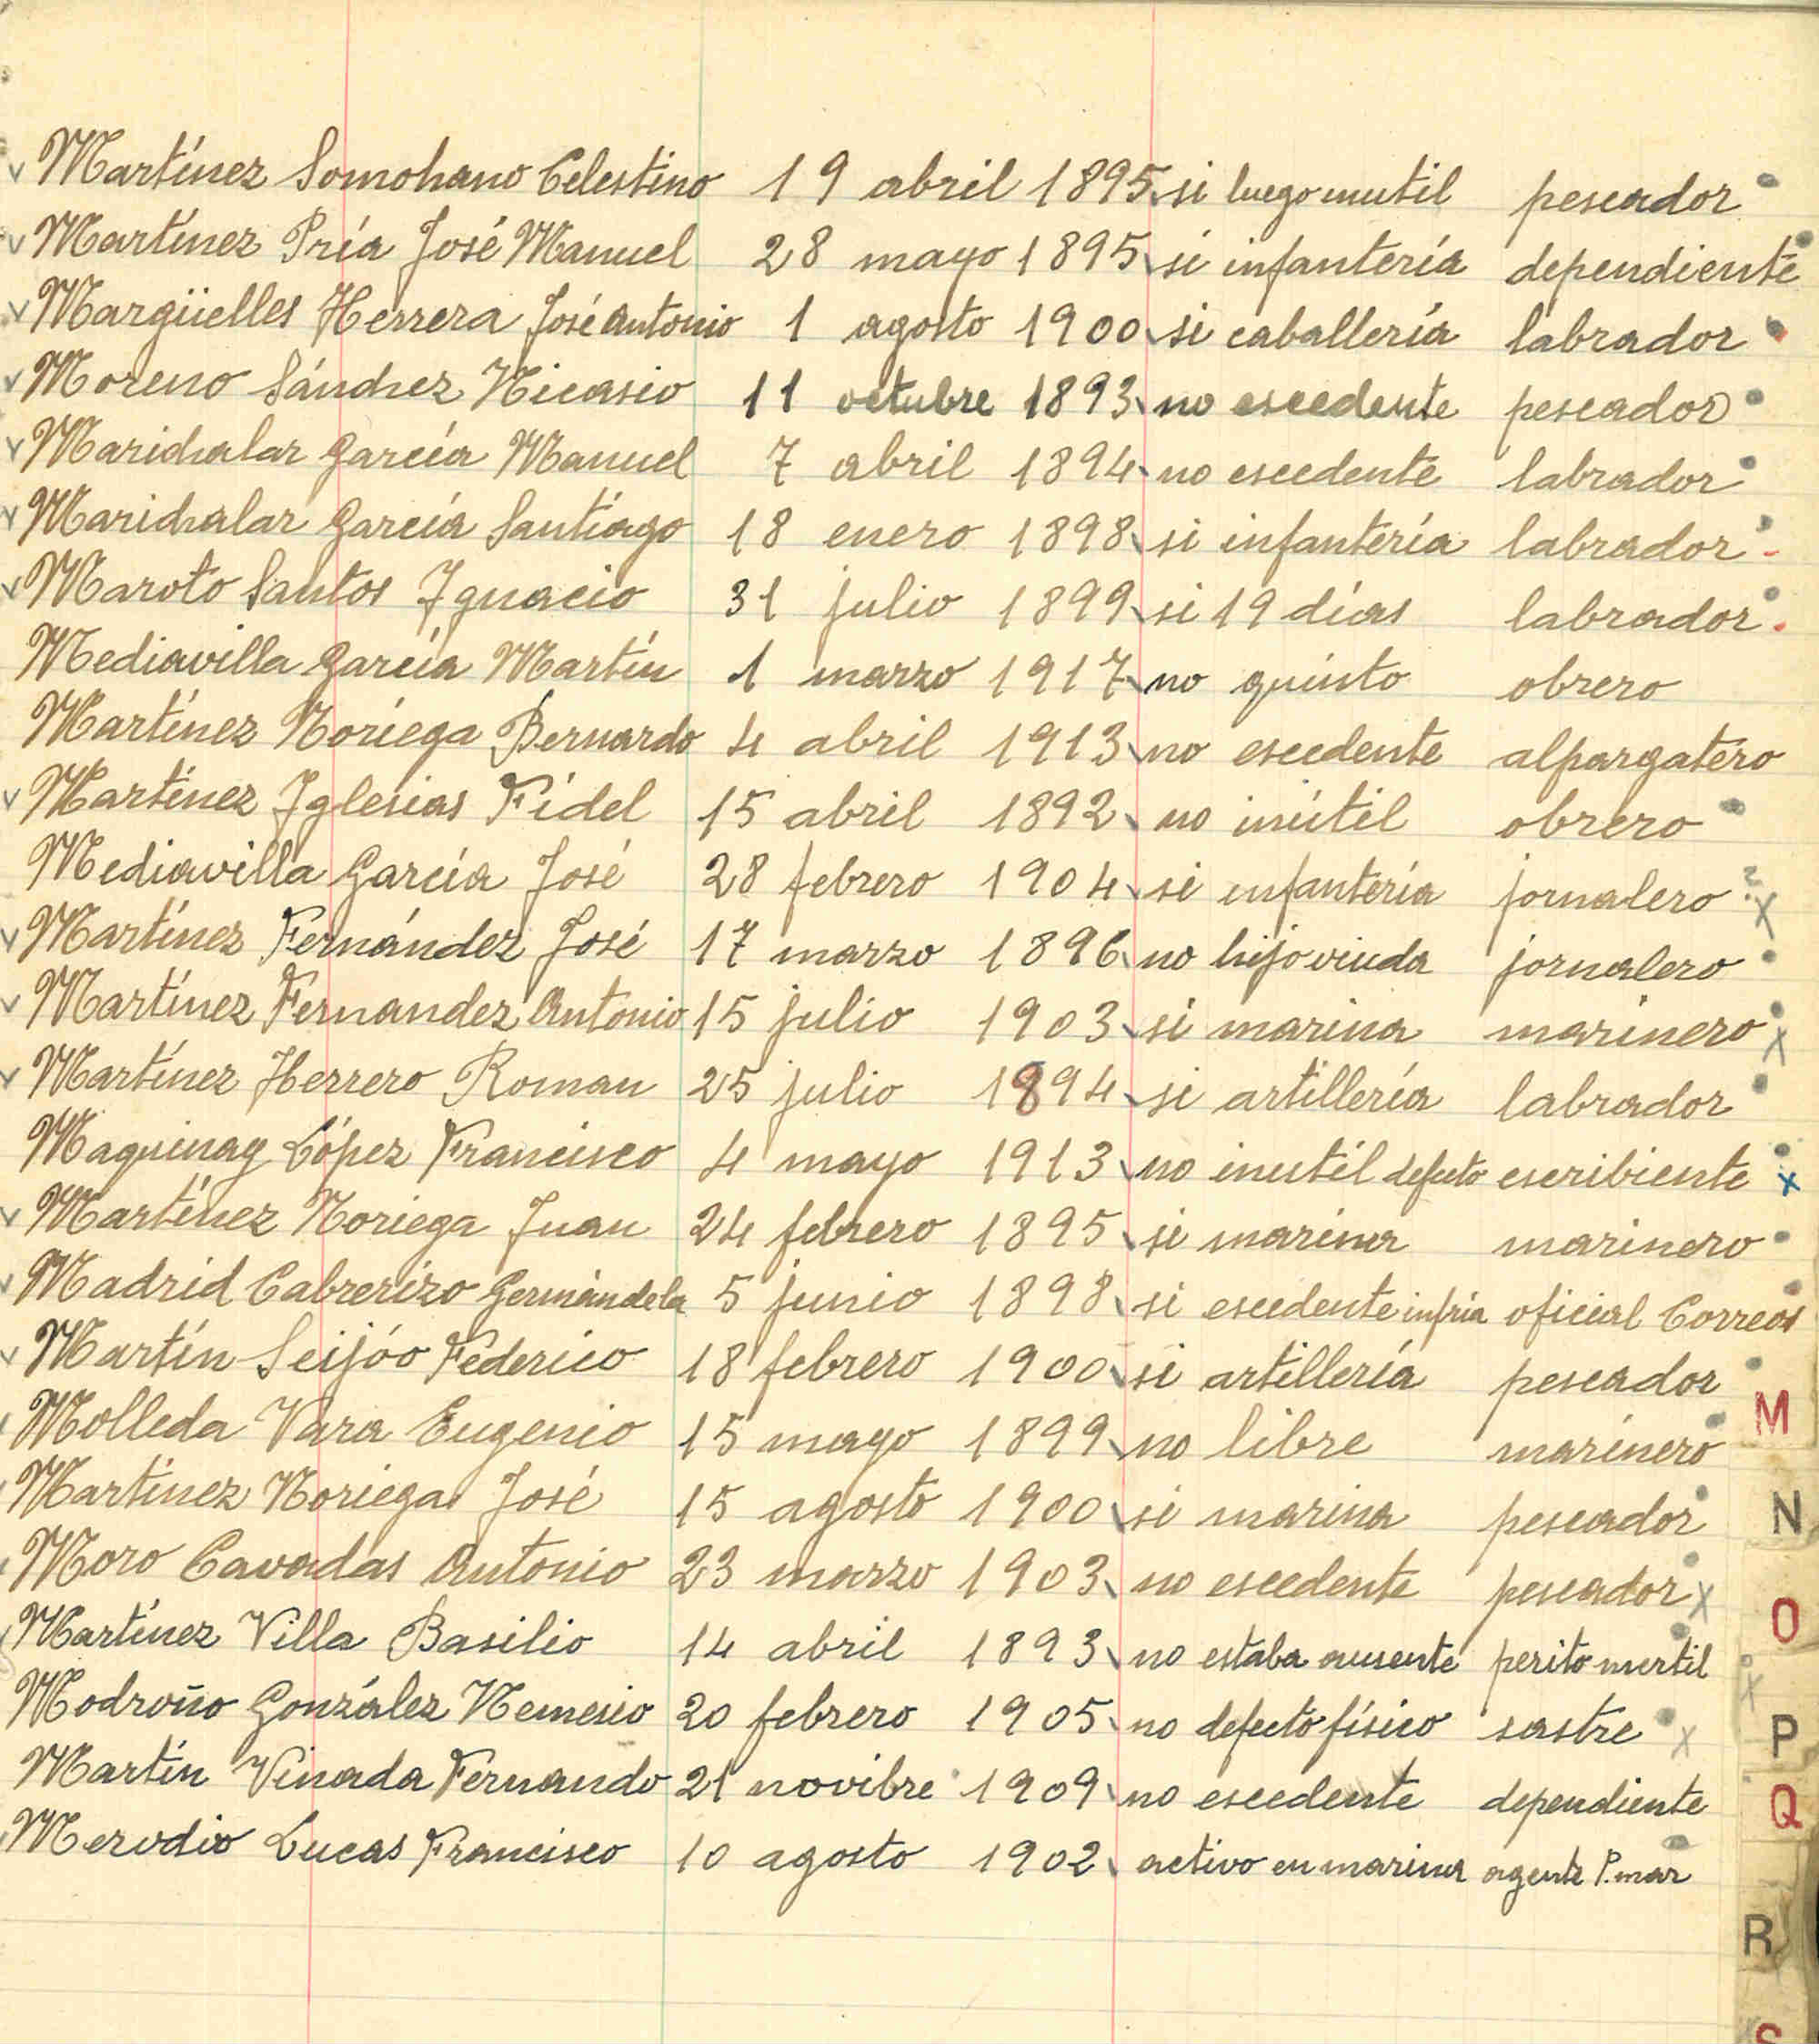 Martínez Somohano Celestino 19 abril 1895 si luego inutil pescador
Martínez Pría José Manuel 28 mayo 1895 si infantería dependiente
Margüelles Herrera José Antonio 1 agosto 1900 si caballería labrador
Moreno Sánchez Nicasio 11 octubre 1893 no escedente pescador
Marichalar García Manuel 7 abril 1894 no escedente labrador
Marichalar García Santiago 18 enero 1898 si infantería labrador
Maroto Santos Ignacio 31 julio 1899 si 19 días labrador
Mediavilla García Martín 1 marzo 1917 no quinto obrero
Martínez Noriega Bernardo 4 abril 1913 no escedente alpargatero
Martínez Iglesias Fidel 15 abril 1892 no inútil obrero
Mediavilla García José 28 febrero 1904 si infantería jornalero ? x
Martínez Fernández José 17 marzo 1896 no hijo viuda jornalero
Martínez Fernandez Antonio 15 julio 1903 si marina marinero x
Martínez Herrero Roman 25 julio 1894 si artillería labrador
Maquinay López Francisco 4 mayo 1913 no inutil defecto escribiente x
Martínez Noriega Juan 24 febrero 1895 si marina marinero
Madrid Cabrerizo Germán dela 5 junio 1898 si escedente infría oficial Correos
Martín Seijóo Federico 18 febrero 1900 si artillería pescador
M
Molleda Vara Eugenio 15 mayo 1899 no libre marinero
Martínez Noriega José 15 agosto 1900 si marina pescador
N
Moro Cavadas Antonio 23 marzo 1903 no escedente pescador x
O
Martínez Villa Basilio 14 abril 1893 no estaba ausente perito mertil x
Modroño González Nemesio 20 febrero 1905 no defecto físico sastre x
P
Martín Vinada Fernando 21 novibre 1909 no escedente dependiente
Q
Merodio Lucas Francisco 10 agosto 1902 activo en marina agente P. mar
R
S